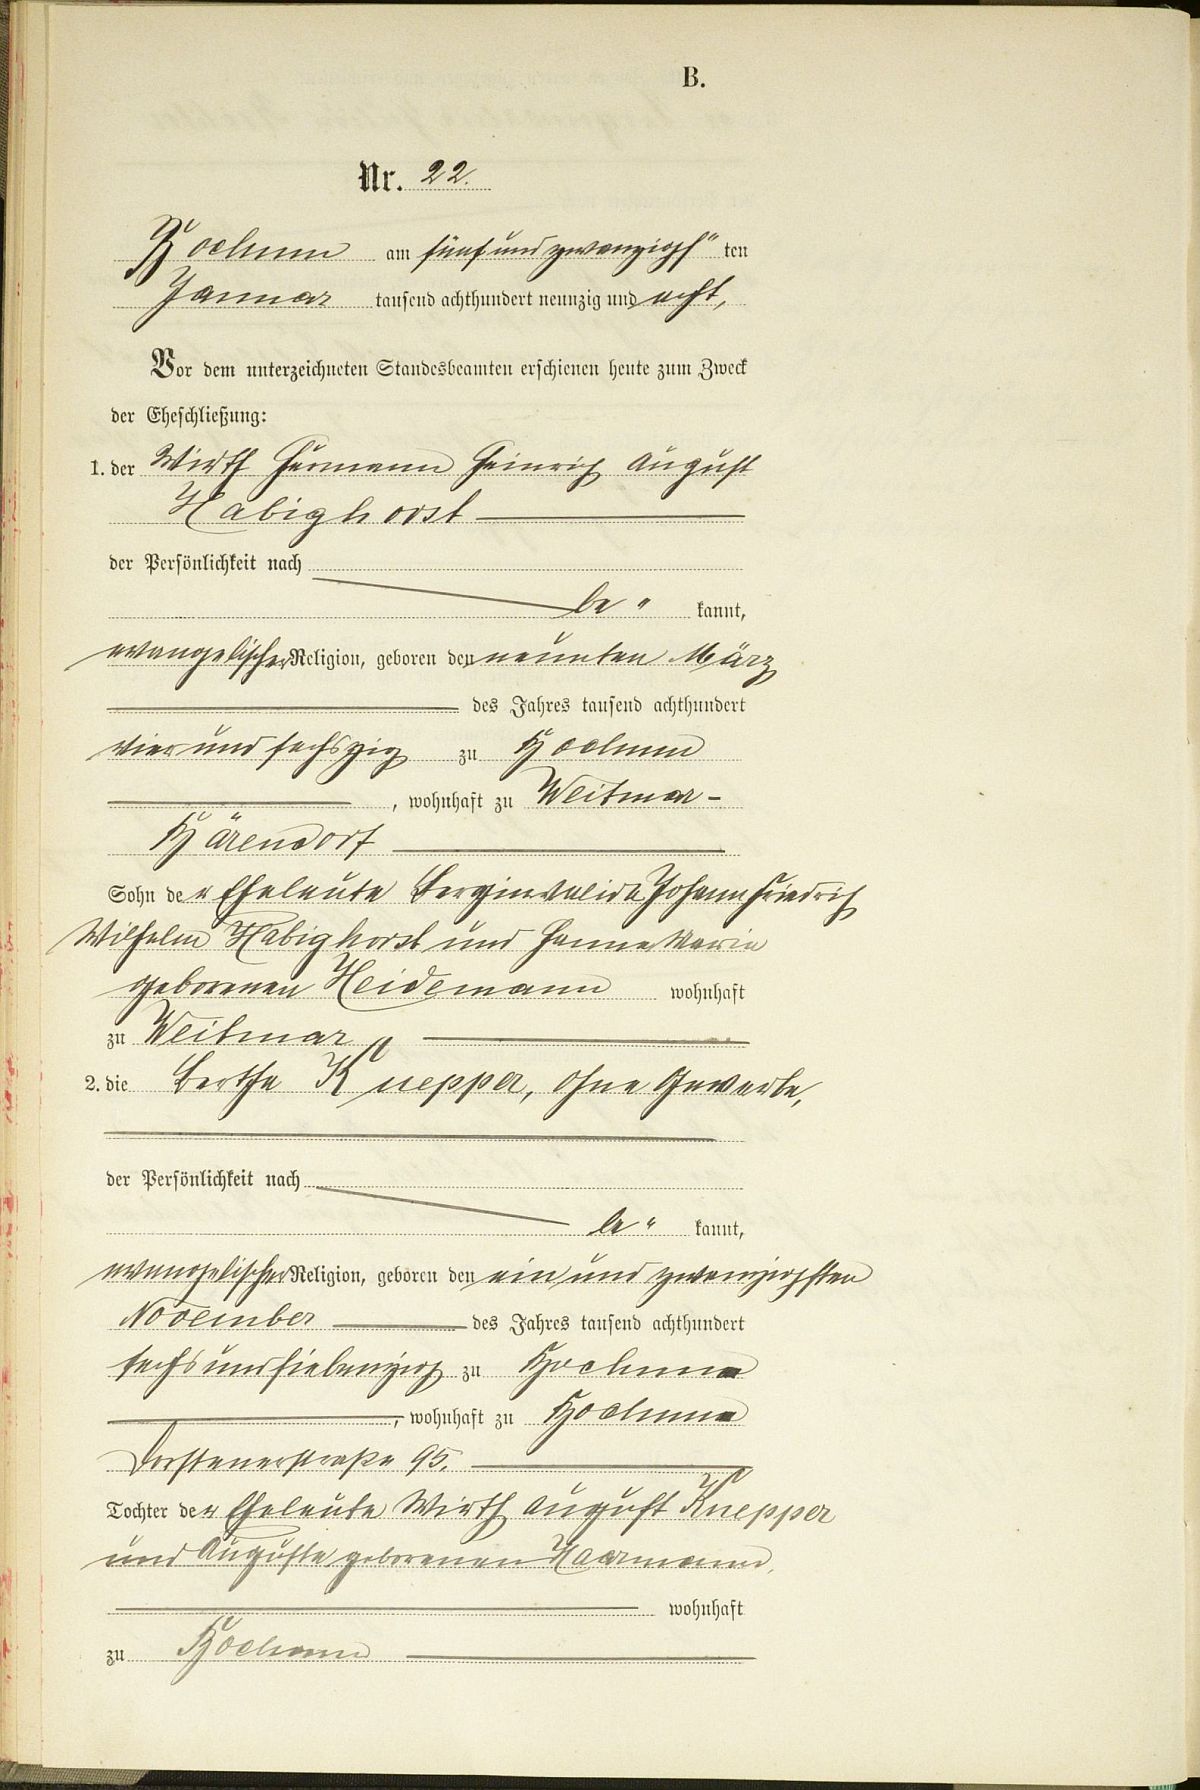 B.
Nr. 22.
Bochum am fünfundzwanzigs ten
Januar tausend achthundert neunzig und acht,
Vor dem unterzeichneten Standesbeamten erschienen heute zum Zweck
der Eheschließung:
1. der Wirth Hermann Heinrich August
Habighorst
der Persönlichkeit nach
be kannt,
evangelischer Religion, geboren den neunten März
des Jahres tausend achthundert
vier und sechszig zu Bochum
, wohnhaft zu Weitmar-
Bärendorf
Sohn der Eheleute Berginvalide Johann Friedrich
Wilhelm Habighorst und Hanne Maria
geborenen Heidemann wohnhaft
zu Weitmar
2. die Bertha Knepper, ohne Gewerbe,
der Persönlichkeit nach
be kannt,
evangelischer Religion, geboren den ein und zwanzigsten
November des Jahres tausend achthundert
sechs und siebenzig zu Bochum
, wohnhaft zu Bochum
Dorstenerstraße 95.
Tochter der Eheleute Wirth August Knepper
und Auguste geborenen Haarmann,
wohnhaft
zu Bochum